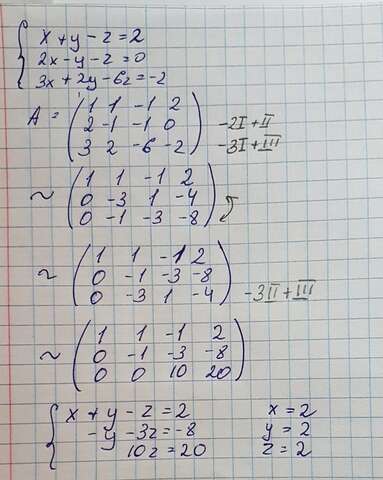 x + y - z = 2
2x - y - z = 0
3x + 2y - 6z = -2
A = 1 1 -1 2
2 -1 -1 0 -2I + II
3 2 -6 -2 -3I + III
~ 1 1 -1 2
0 -3 1 -4
0 -1 -3 -8
~ 1 1 -1 2
0 -1 -3 -8
0 -3 1 -4 -3II + III
~ 1 1 -1 2
0 -1 -3 -8
0 0 10 20
x + y - z = 2 x = 2
-y - 3z = -8 y = 2
10z = 20 z = 2